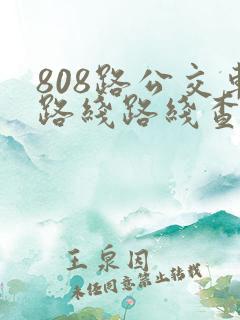 808路公交车
路线路线查
王泉因
未经同意禁止转载